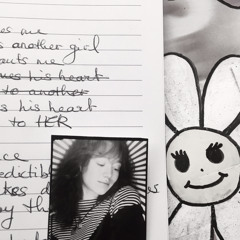 es me
s another girl
auts me
mes his heart
to another
s his heart
to HER
ce
redictib
akes d es
by the